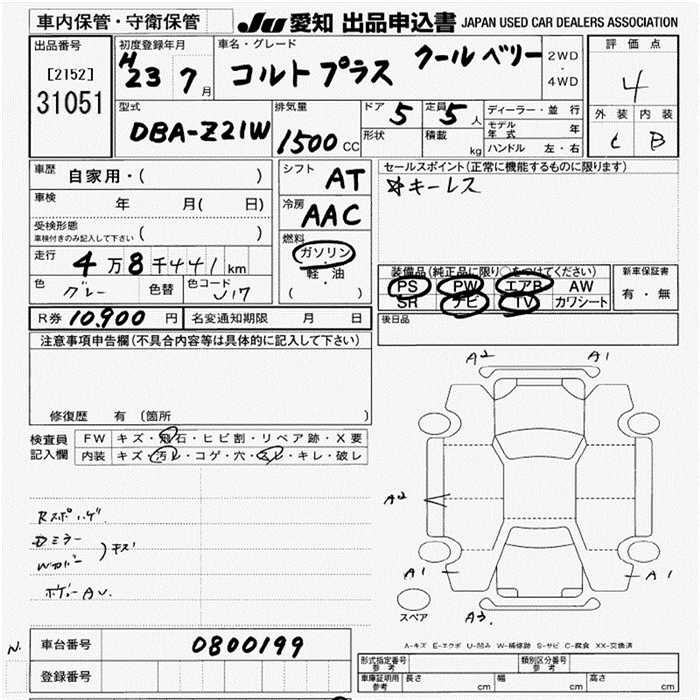 車内保管・守衛保管 JU 愛知 出品申込書 JAPAN USED CAR DEALERS ASSOCIATION
出品番号
[2152]
31051
初度登録年月
H
23 7 月
車名・グレード
コルトプラス クールベリー
2WD
・
4WD
評価点
4
外装 内装
C B
型式
DBA-Z21W
排気量
1500 CC
ドア 5
形状
定員 5 人
積載 kg
ディーラー・並行
モデル
年式 年
ハンドル 左・右
車歴
自家用・( )
車検 年 月( 日)
受検形態
車検付きのみ記入して下さい ( )
走行
4万8千441km
色 グレー 色替 色コード U17
シフト AT
冷房 AAC
燃料
ガソリン
・
軽・油
( )
セールスポイント(正常に機能するものに限ります)
☆キーレス
装備品(純正品に限り○をつけてください)
PS PW エアB AW
SR ナビ TV カワシート
新車保証書
有・無
R券 10,900 円 名変通知期限 月 日
後日品
注意事項申告欄(不具合内容等は具体的に記入して下さい)
修復歴 有 (箇所
検査員
記入欄
FW キズ・飛石・ヒビ割・リペア跡・X要
内装 キズ・汚レ・コゲ・穴・スレ・キレ・破レ
Dミラー
キズ
ボデーAU.
A2 A1
A2
A1 A1
A3.
スペア
A-キズ E-エクボ U-凹み W-補修跡 S-サビ C-腐食 XX-交換済
N.
車台番号 0800199
登録番号
形式指定番号
参考
類別区分番号
参考
車庫証明用
参考
長さ cm 幅 cm 高さ cm